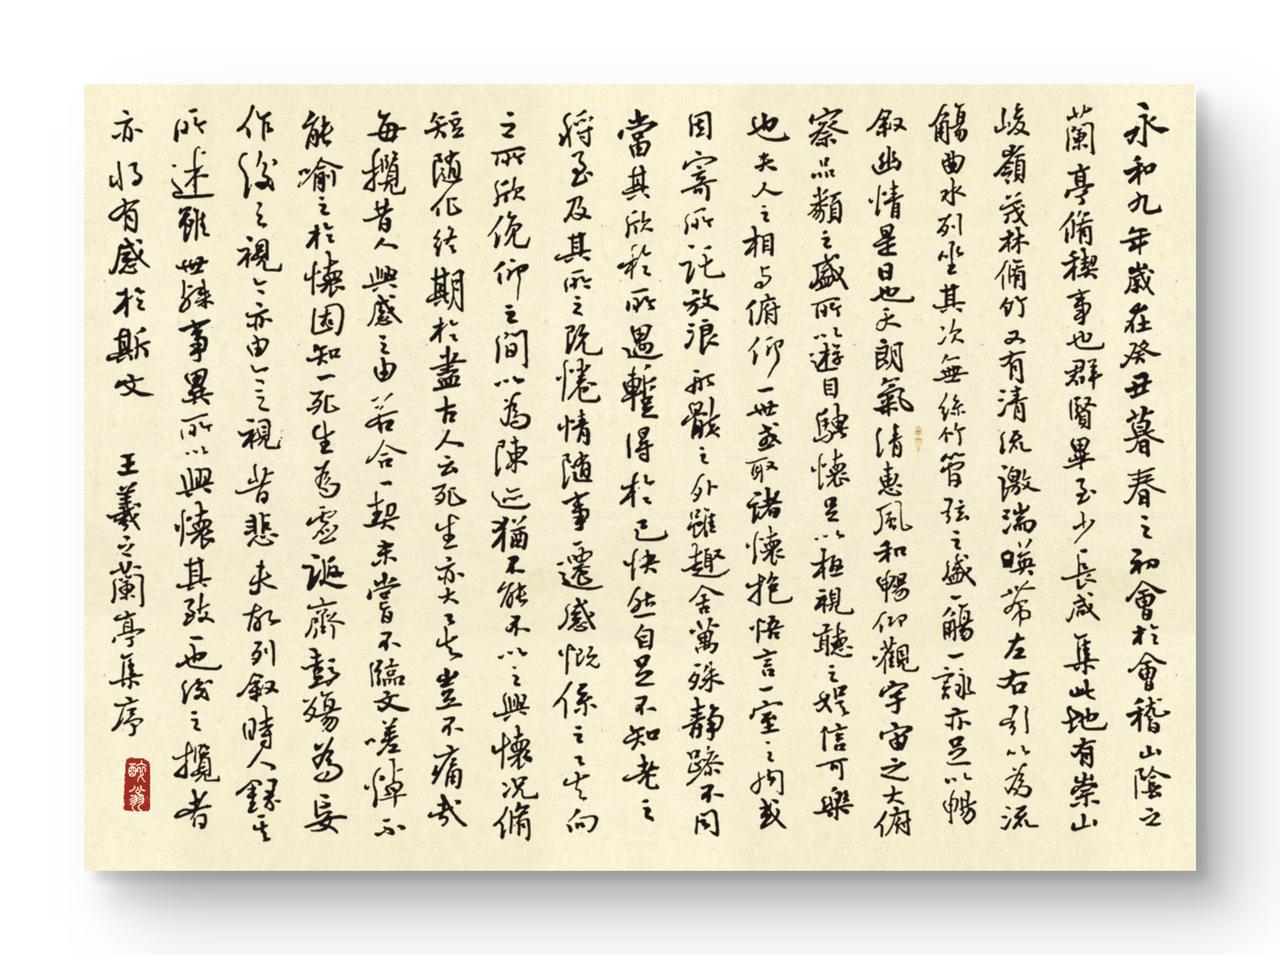 永和九年歲在癸丑暮春之初會於會稽山陰之
蘭亭脩稧事也群賢畢至少長咸集此地有崇山
峻嶺茂林脩竹又有清流激湍暎帶左右引以為流
觴曲水列坐其次無絲竹管弦之盛一觴一詠亦足以暢
叙幽情是日也天朗氣清惠風和暢仰觀宇宙之大俯
察品類之盛所以遊目騁懷足以極視聽之娛信可樂
也夫人之相與俯仰一世或取諸懷抱悟言一室之內或
因寄所託放浪形骸之外雖趣舍萬殊靜躁不同
當其欣於所遇蹔得於己快然自足不知老之
將至及其所之既惓情隨事遷感慨係之矣向
之所欣俛仰之間以為陳迹猶不能不以之興懷況脩
短隨化終期於盡古人云死生亦大矣豈不痛哉
每攬昔人興感之由若合一契未嘗不臨文嗟悼不
能喻之於懷固知一死生為虛誕齊彭殤為妄
作後之視今亦由今之視昔悲夫故列叙時人錄其
所述雖世殊事異所以興懷其致一也後之攬者
亦將有感於斯文 王羲之蘭亭集序
醉翁